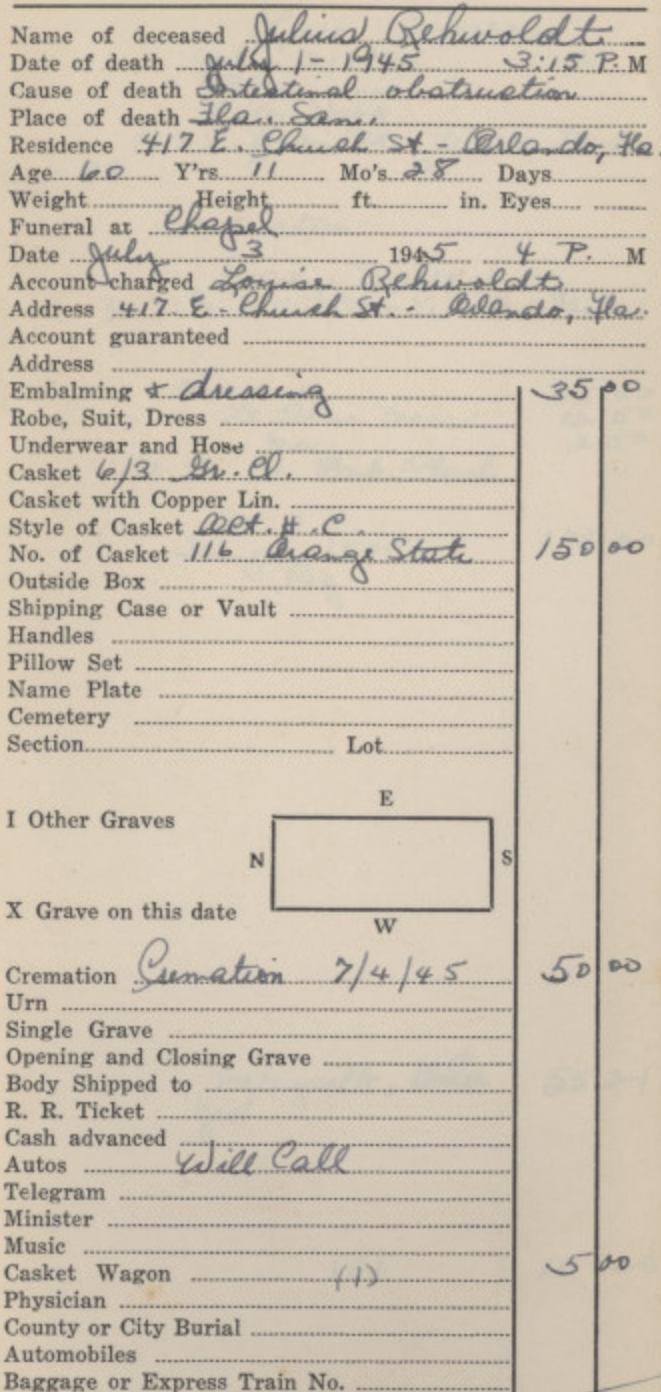 Name of deceased Julius Rehwoldt
Date of death July 1 - 1945 3:15 P. M
Cause of death Intestinal obstruction
Place of death Fla. San.
Residence 417 E. Church St - Orlando, Fla.
Age 60 Y'rs 11 Mo's 28 Days
Weight Height ft. in. Eyes
Funeral at Chapel
Date July 3 1945 4 P. M
Account charged Louise Rehwoldt
Address 417 E - Church St. - Orlando, Fla.
Account guaranteed
Address
Embalming & dressing 35 00
Robe, Suit, Dress
Underwear and Hose
Casket 6/3 Gr. Cl.
Casket with Copper Lin.
Style of Casket Oct. H. C.
No. of Casket 116 Orange State 150 00
Outside Box
Shipping Case or Vault
Handles
Pillow Set
Name Plate
Cemetery
Section Lot
E
I Other Graves
N S
X Grave on this date
W
Cremation Cremation 7/4/45 50 00
Urn
Single Grave
Opening and Closing Grave
Body Shipped to
R. R. Ticket
Cash advanced
Autos Will Call
Telegram
Minister
Music
Casket Wagon (1) 5 00
Physician
County or City Burial
Automobiles
Baggage or Express Train No.